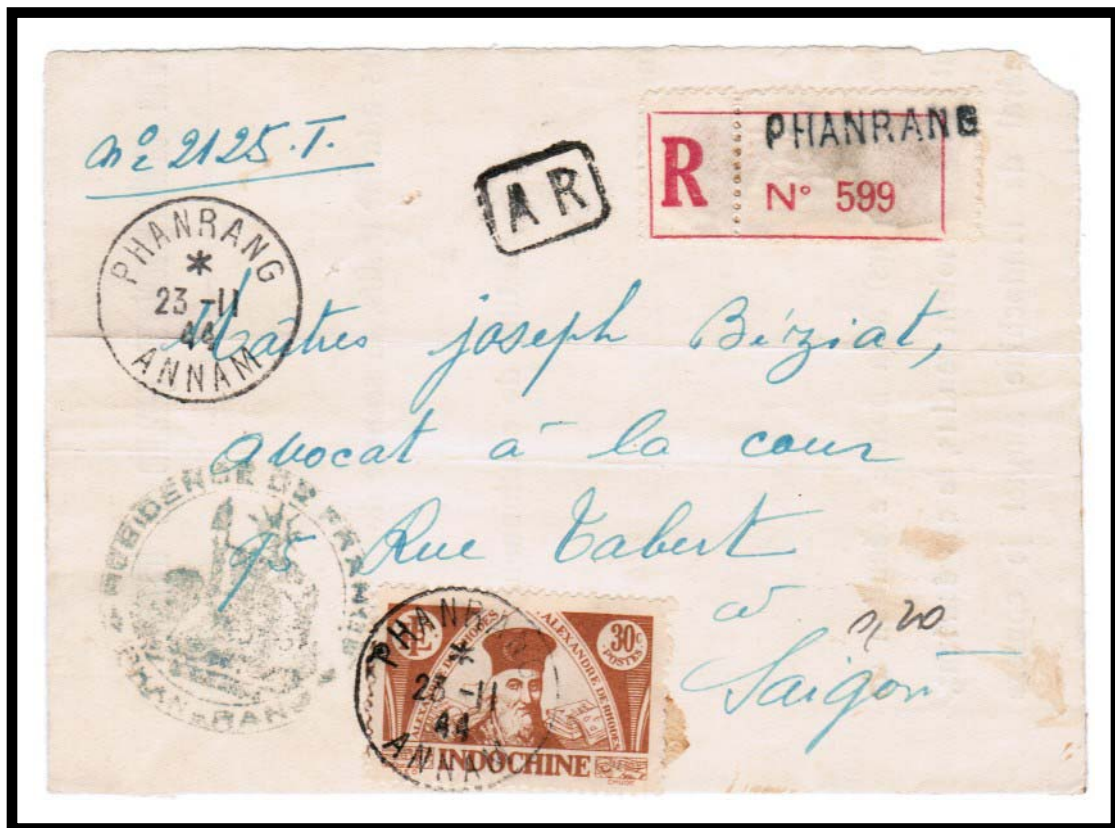 PHANRANG
Nº 2125.T.
A R
R
Nº 599
PHANRANG
*
23-11
44
ANNAM
Maîtres joseph Béziat,
avocat à la cour
95 Rue Tabert
à
Saigon
0,20
RESIDENCE DE FRANCE
PHAN-RANG
PHANRANG
*
23-11
44
ANNAM
ALEXANDRE DE RHODES
ALEXANDRE DE RHODES
30c
POSTES
INDOCHINE